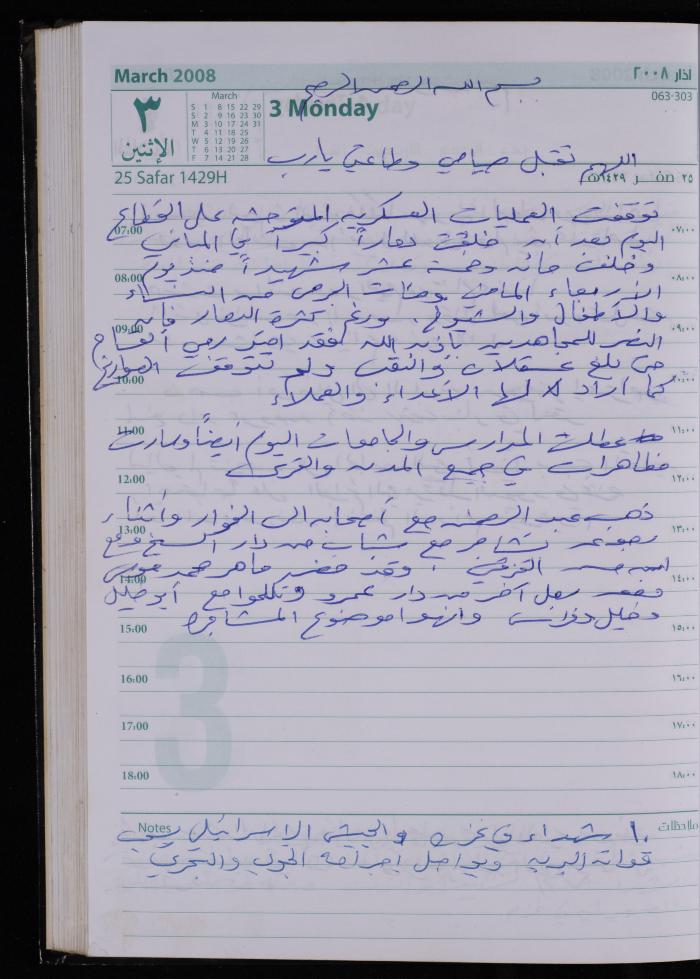 March 2008
اذار ٢٠٠٨
بسم الله الرحمن الرحيم
063-303
٣
الإثنين
March
S 1 8 15 22 29
S 2 9 16 23 30
M 3 10 17 24 31
T 4 11 18 25
W 5 12 19 26
T 6 13 20 27
F 7 14 21 28
3 Monday
اللهم تقبل صيامي وطاعتي يارب
25 Safar 1429H
٢٥ صفر ١٤٢٩هـ
توقفت العمليات العسكرية المتوحشة على القطاع
07:00
٠٧:٠٠
اليوم بعد أن خلفت دماراً كبيراً في المباني
وخلفت مائه وخمسة عشر شهيداً منذ يوم
08:00
٠٨:٠٠
الأربعاء الماضي ومئات الجرحى من النساء
والأطفال والشيوخ. ورغم كثرة الدمار فإن
09:00
النصر للمجاهدين بإذن الله فقد امتد رمي الصواريخ
حتى بلغ عسقلان والنقب ولم تتوقف الصواريخ
10:00
١٠:٠٠
كما أراد لها الأعداء والعملاء
11:00
١١:٠٠
عطلت المدارس والجامعات اليوم أيضاً وسارت
مظاهرات في جميع المدن والقرى
12:00
١٢:٠٠
ذهب عبد الرحمن مع أصحابه الى الفوار وأثناء
13:00
١٣:٠٠
تشاجر مع شباب من دار
14:00
١٤:٠٠
وقد حضر ماهر محمد
رجل آخر من دار عمرو وتكلموا مع أبو خليل
وخليل وفراس وأنهوا موضوع المشاجرة
15:00
١٥:٠٠
3
16:00
١٦:٠٠
17:00
١٧:٠٠
18:00
١٨:٠٠
Notes
ملاحظات
١٠ شهداء في غزة والجيش الإسرائيلي يسحب
قواته البرية ويواصل اجرامه الجوي والبحري